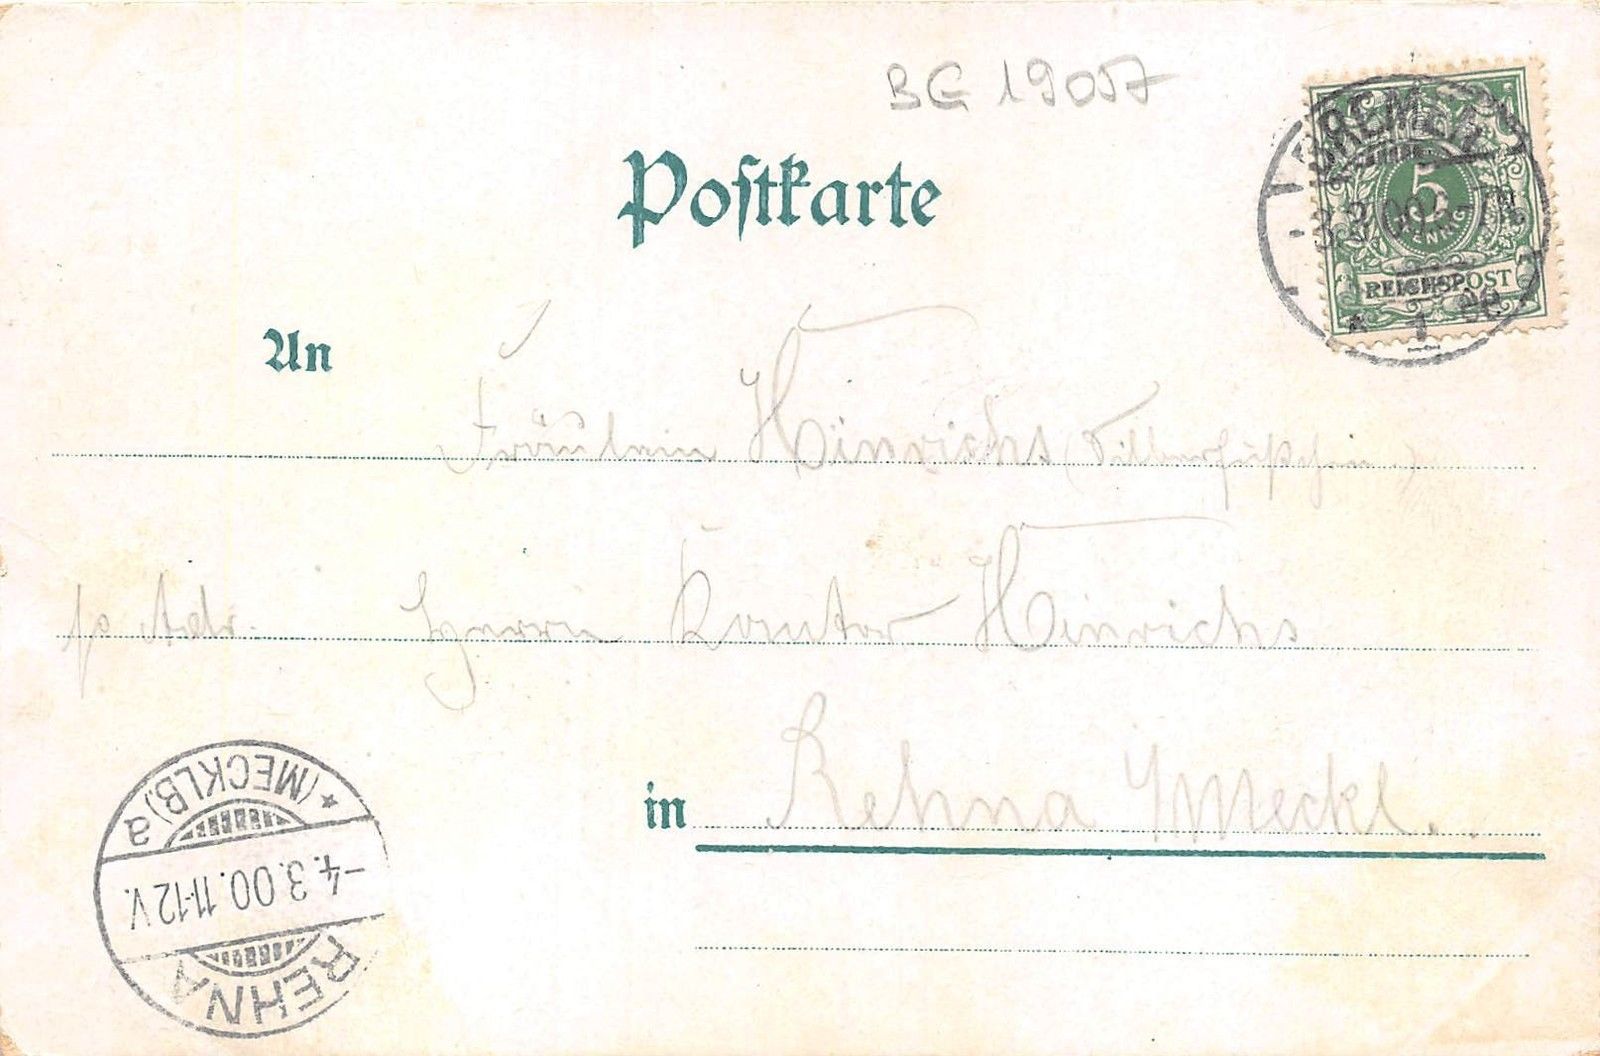 BG 19057
Postkarte
BREMEN
5
PFENNIG
REICHSPOST
1
An
Fräulein Hinrichs (Silberfüßchen)
p. Adr. Herrn Kantor Hinrichs
in Rehna i/Meckl.
REHNA
-4.3.00.11-12V.
* (MECKLB.) a